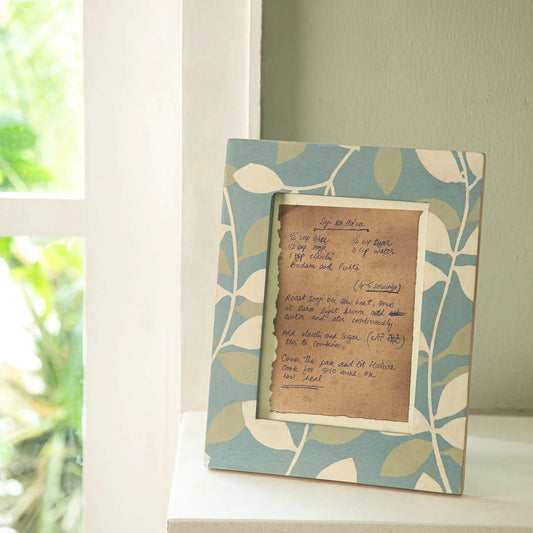 Suji ka Halwa
½ cup Ghee ½ cup Sugar
½ cup Sooji 3 cup water
1 tsp elaichi
Badam and Pista
(4-5 servings)
Roast Sooji on low heat, once
it turns light brown add
water and stir continuously
Add elaichi and Sugar
stir to combine.
Cover the pan and let Halwa
cook for 5-10 mins on
low heat